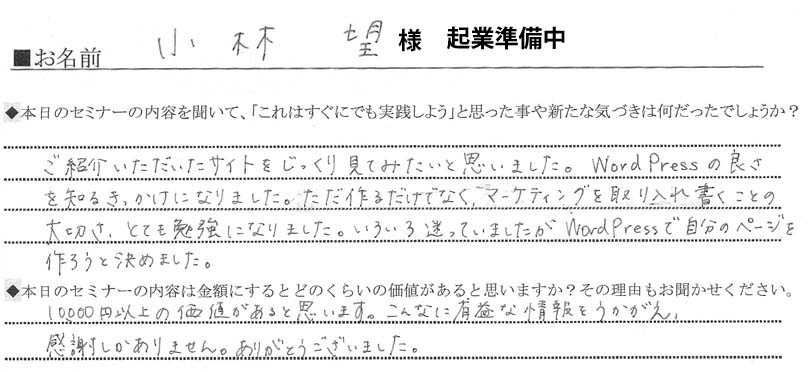 ■お名前 小林 望 様 起業準備中
◆本日のセミナーの内容を聞いて、「これはすぐにでも実践しよう」と思った事や新たな気づきは何だったでしょうか？
ご紹介いただいたサイトをじっくり見てみたいと思いました。WordPressの良さ
を知るきっかけになりました。ただ作るだけでなく、マーケティングを取り入れ書くことの
大切さ、とても勉強になりました。いろいろ迷っていましたがWordPressで自分のページを
作ろうと決めました。
◆本日のセミナーの内容は金額にするとどのくらいの価値があると思いますか？その理由もお聞かせください。
10000円以上の価値があると思います。こんなに有益な情報をうかがえ、
感謝しかありません。ありがとうございました。